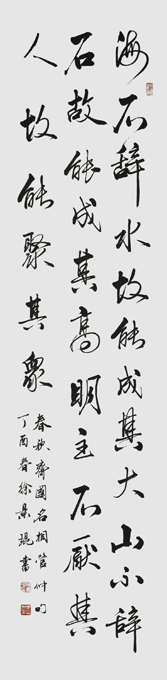 海不辞水故能成其大山不辞
石故能成其高明主不厭其
人故能聚其衆
春秋齊國名相管仲句
丁酉春徐景琨書